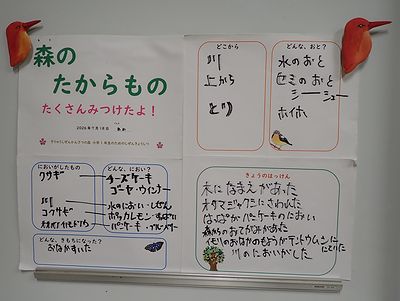 森の
たからもの
たくさんみつけたよ！
2026年7月18日
どこから
川
上から
とり
どんな、おと？
水のおと
セミのおと
シーーシュー
ホイホ
においがしたもの
クサギ
川
コクサギ
どんな、におい？
チーズケーキ
ゴーヤ・ウィンナー
水のにおい・しぜん
ポッカレモン・すっぱい
パンケーキ・ブルーベリー
どんな、きもちになった？
おなかすいた
きょうのはっけん
木になまえがあった
オタマジャクシにさわれた
はっぱがパンケーキのにおい
森からのおてがみがあった
イモリのおなかのもようがテントウムシに
にてた
川のにおいがした